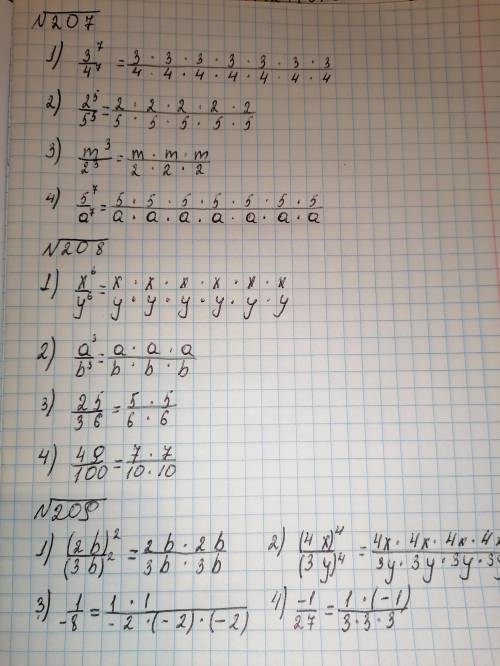 №207
1) 3⁷/4⁷ = 3 · 3 · 3 · 3 · 3 · 3 · 3 / 4 · 4 · 4 · 4 · 4 · 4 · 4
2) 2⁵/5⁵ = 2 · 2 · 2 · 2 · 2 / 5 · 5 · 5 · 5 · 5
3) m³/2³ = m · m · m / 2 · 2 · 2
4) 5⁷/a⁷ = 5 · 5 · 5 · 5 · 5 · 5 · 5 / a · a · a · a · a · a · a
№208
1) x⁶/y⁶ = x · x · x · x · x · x / y · y · y · y · y · y
2) a³/b³ = a · a · a / b · b · b
3) 25/36 = 5 · 5 / 6 · 6
4) 49/100 = 7 · 7 / 10 · 10
№209
1) (2b)²/(3b)² = 2b · 2b / 3b · 3b 2) (4x)⁴/(3y)⁴ = 4x · 4x · 4x · 4x / 3y · 3y · 3y · 3y
3) 1/-8 = 1 · 1 / -2 · (-2) · (-2) 4) -1/27 = 1 · (-1) / 3 · 3 · 3